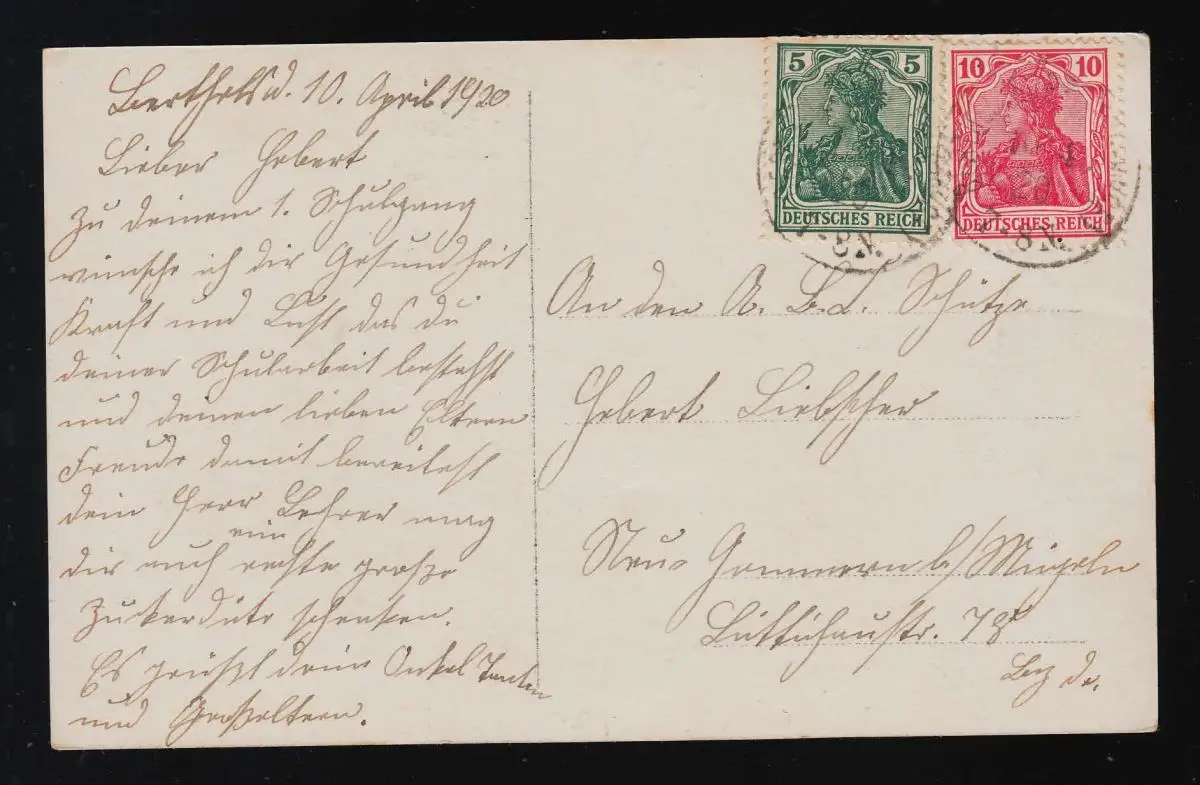 Berthelsd. 10. April 1920
Lieber Hebert
Zu deinem 1. Schulgang
wünsche ich dir Gesundheit
Kraft und Lust das du
deiner Schularbeit bestehst
und deinen lieben Eltern
Freude damit bereitest
dein Herr Lehrer mag
ein
dir auch rechte große
Zuckerdüte schenken.
Es grüßt dein Onkel Tanten
und Großeltern.
5 5
DEUTSCHES REICH
10 10
DEUTSCHES REICH
20
8 N.
An den A. B. C. Schütze
Hebert Liebscher
Neu-Gommern b/Mügeln
Lüttichaustr. 78
Bez. Dr.